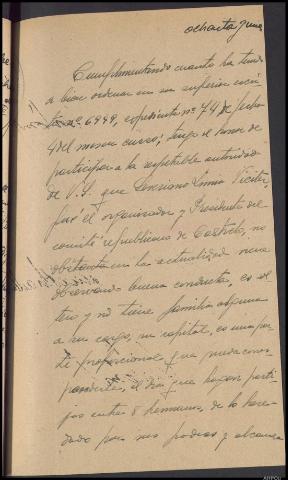 ochenta y una
Cumplimentando cuanto ha teni
a bien ordenar en su superior escri
nº 6999, expediente nº 74 de
4 del mismo curso; tengo el honor de
participar a la respetable autoridad
de V.S. que
fué el organizador y Presidente del
comité republicano de
obstante en la actualidad viene
observando buena conducta, es sol
tero y no tiene familia alguna
a su cargo, su capital, es una par
te proporcional que pueda corres
ponderle, el dia que hagan parti
jas entre 8 hermanos, de lo here
dado por sus padres y alcanza